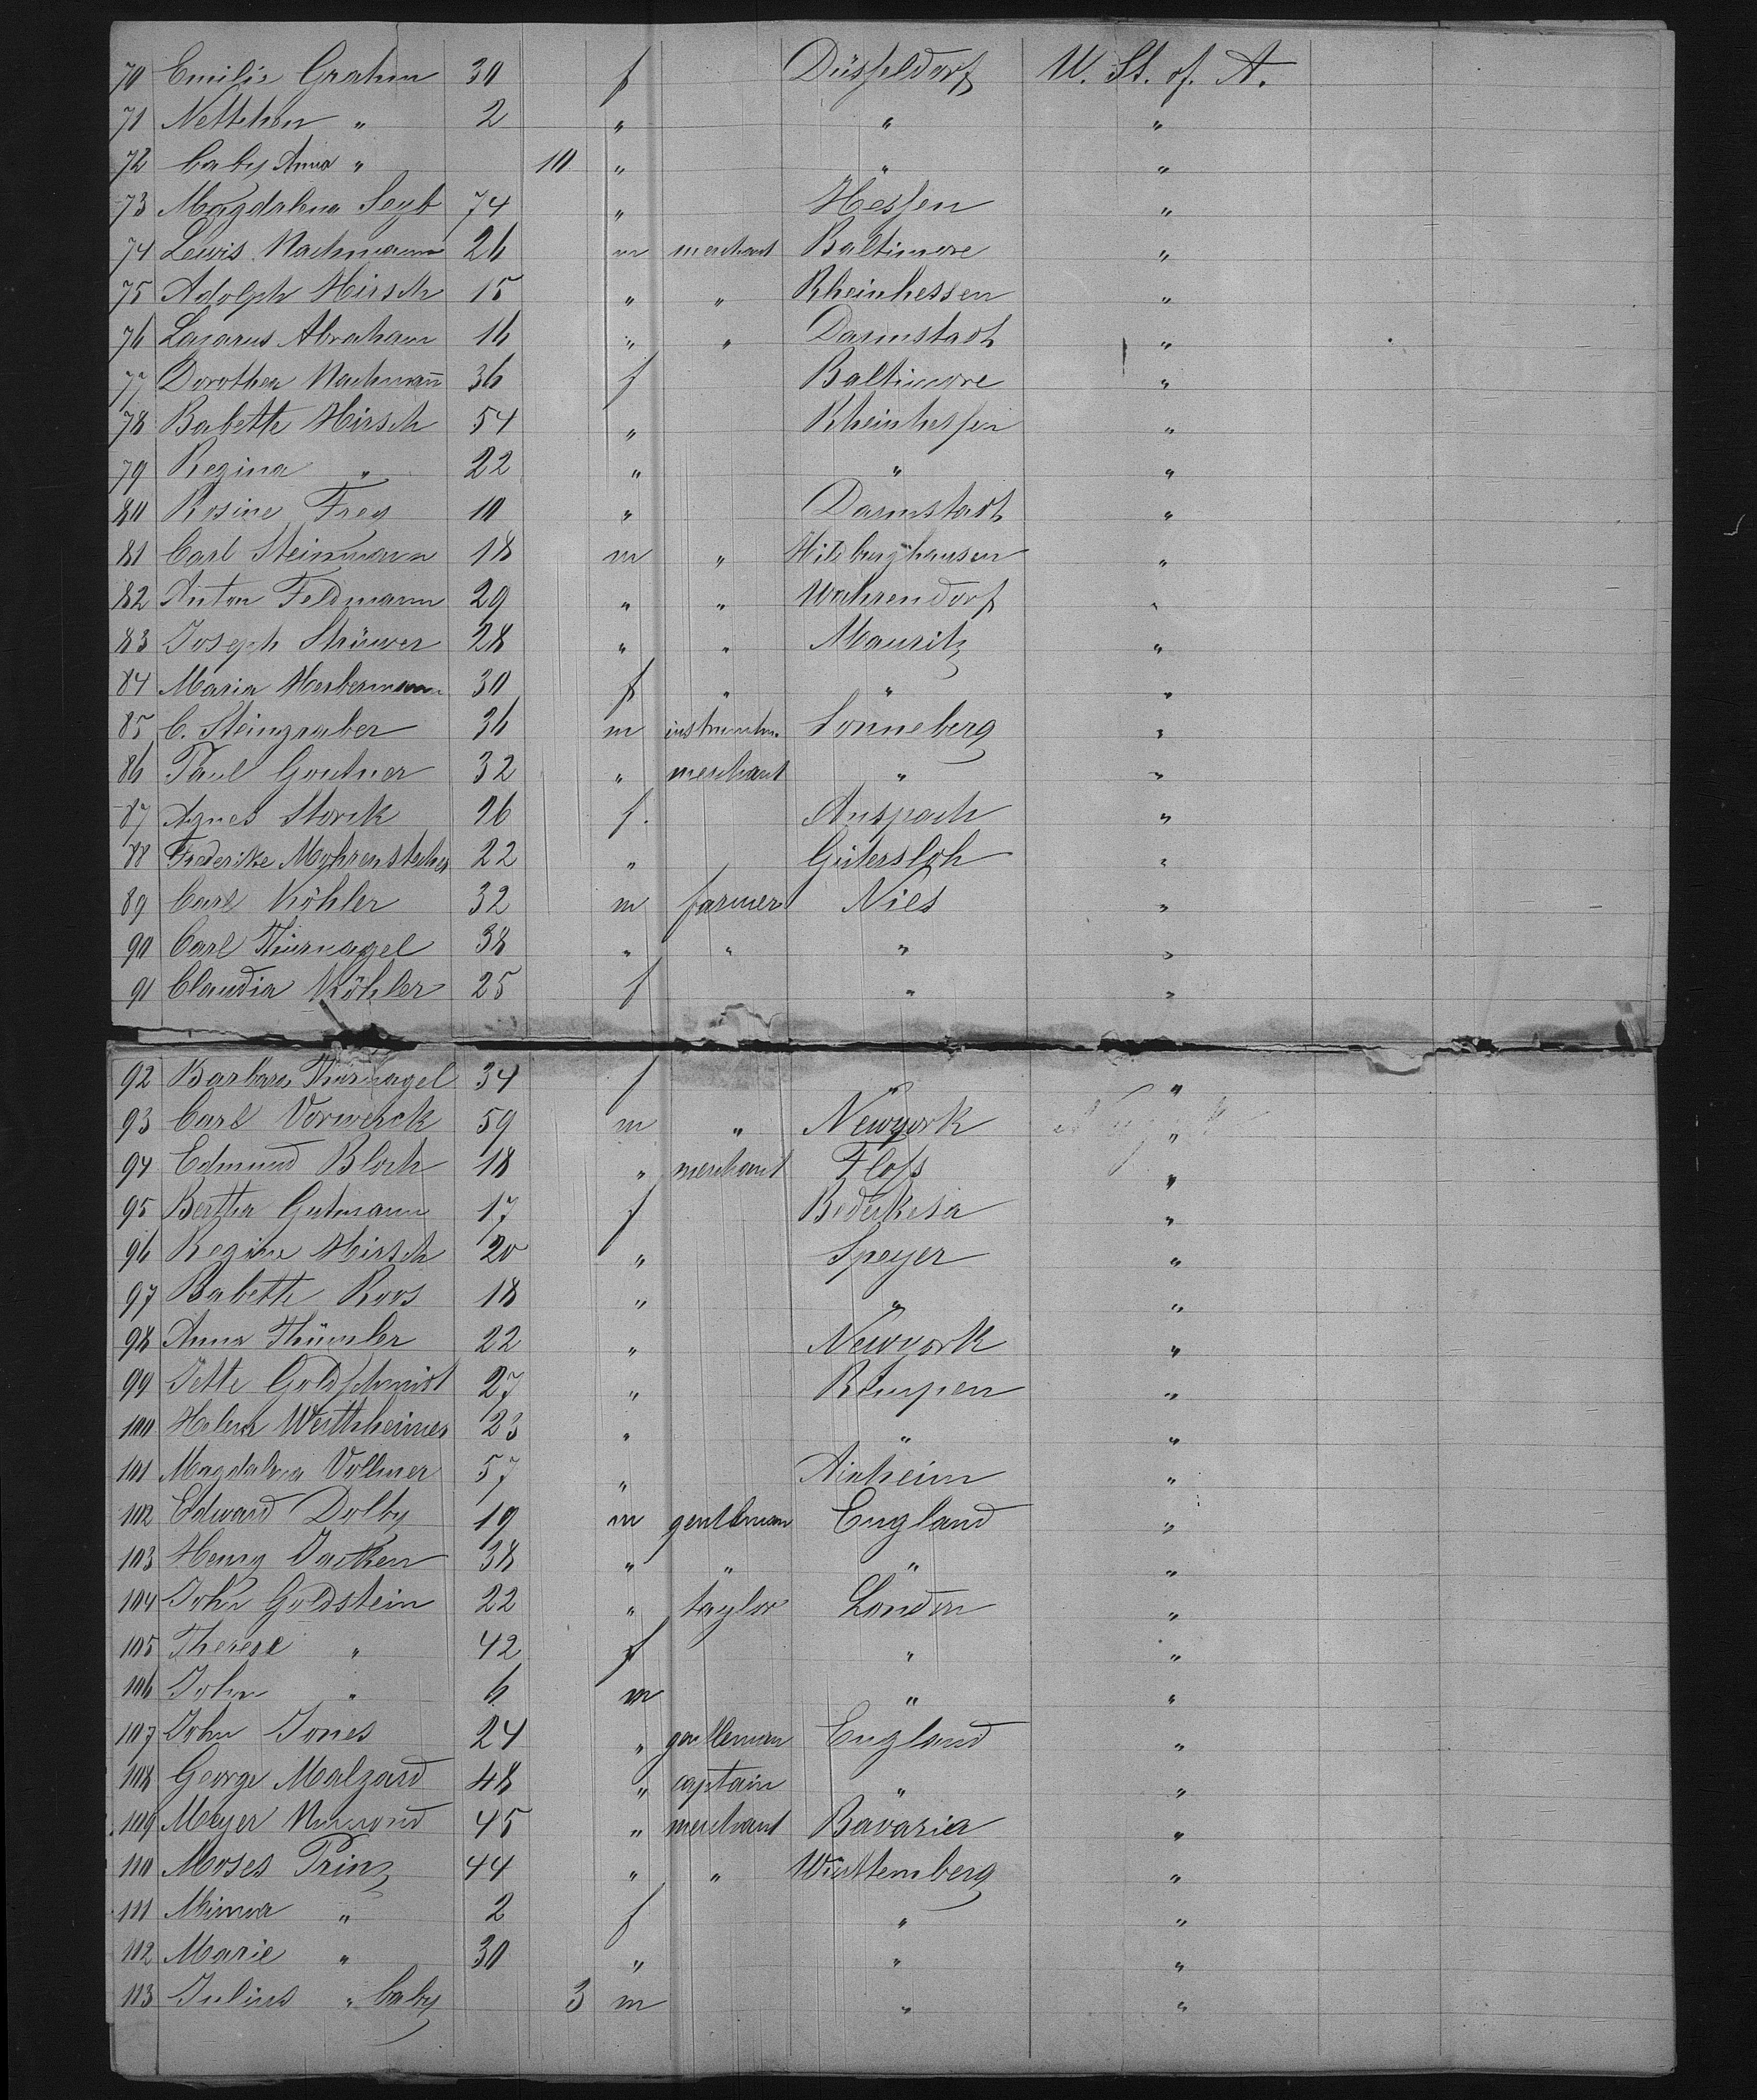 70 Emilie Graham 30 f Düsseldorf U. St. of. A.
71 Nettchen " 2 " " "
72 baby Anna " 10 " " "
73 Magdalena Seyb 74 " Hessen "
74 Lewis Nachmann 26 m merchant Baltimore "
75 Adolph Hirsch 15 " " Rheinhessen "
76 Lazarus Abraham 16 " " Darmstadt "
77 Dorothea Nachmañ 36 f Baltimore "
78 Babette Hirsch 54 " Rheinhessen "
79 Regina " 22 " " "
80 Rosine Frey 10 " Darmstadt "
81 Carl Steinmann 18 m " Hildburghausen "
82 Anton Feldmann 29 " " Wahrendorf "
83 Joseph Strüwer 28 " " Mauritz "
84 Maria Herbermann 30 f " " "
85 C. Steingraber 36 m instrumtm. Sonneberg "
86 Paul Goutner 32 " merchant " "
87 Agnes Storck 26 f. Anspach "
88 Frederike Mohrenstecher 22 " Gütersloh "
89 Carl Köhler 32 m farmer Nies "
90 Carl Thürnagel 38 " " " "
91 Claudia Köhler 25 f " "
92 Barbara Thürnagel 34 f " "
93 Carl Vorwerck 59 m " Newyork "
94 Edmund Bloch 18 " merchant Floss "
95 Bertha Gutmann 17 f Bederkesa "
96 Regine Hirsch 20 " Speyer "
97 Babette Roos 18 " " "
98 Anna Thümler 22 " Newyork "
99 Jette Goldschmidt 27 " Rimpen "
100 Helene Wertheimer 23 " " "
101 Magdalena Vollmer 57 " Ainheim "
102 Edward Dolby 19 m gentleman England "
103 Henry 38 " " " "
104 John Goldstein 22 " taylor London "
105 Therese " 42 f " "
106 John " 6 m " "
107 John Jones 24 " gentleman England "
108 George Malzard 48 " captain " "
109 Meyer 45 " merchant Bavaria "
110 Moses Prinz 44 " " Württemberg "
111 Minna " 2 f " "
112 Marie " 30 " " "
113 Julius " baby 3 m " "